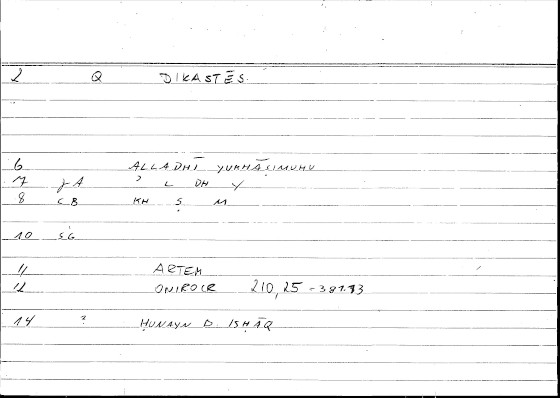 2 Q DIKASTĒS.
6 ALLADHĪ YUKHĀṢIMUHU
7 JA ʾ L DH Y
8 CB KH Ṣ M
10 SG
11 ARTEM
12 ONIROCR 210,25 - 381.13
14 ? ḤUNAYN B. ISḤĀQ